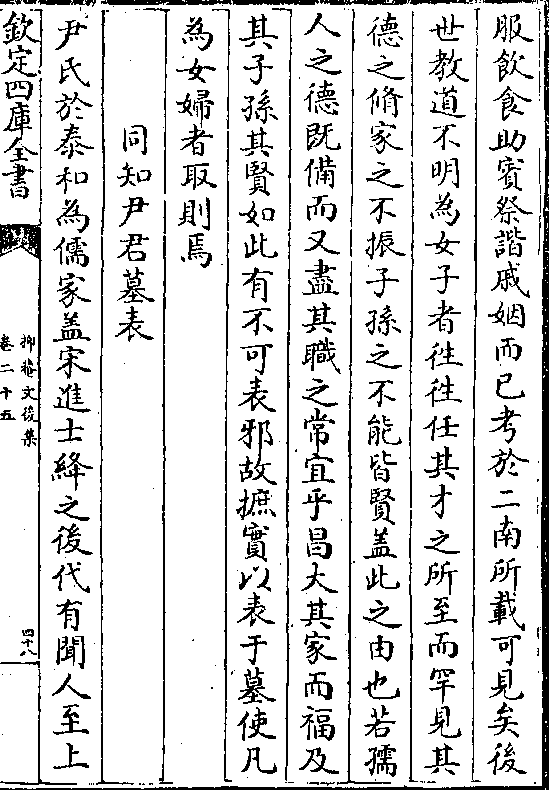 服飲食助賓祭諧戚姻而已考於二南所載可見矣後
世教道不明為女子者徃徃任其才之所至而罕見其
德之脩家之不振子孫之不能皆賢盖此之由也若孺
人之德既備而又盡其職之常宜乎昌大其家而福及
其子孫其賢如此有不可表邪故摭實以表于墓使凡
為女婦者取則焉
同知尹君墓表
尹氏於泰和為儒家盖宋進士絳之後代有聞人至上
欽定四庫全書
抑菴文後集
卷二十五
四十八